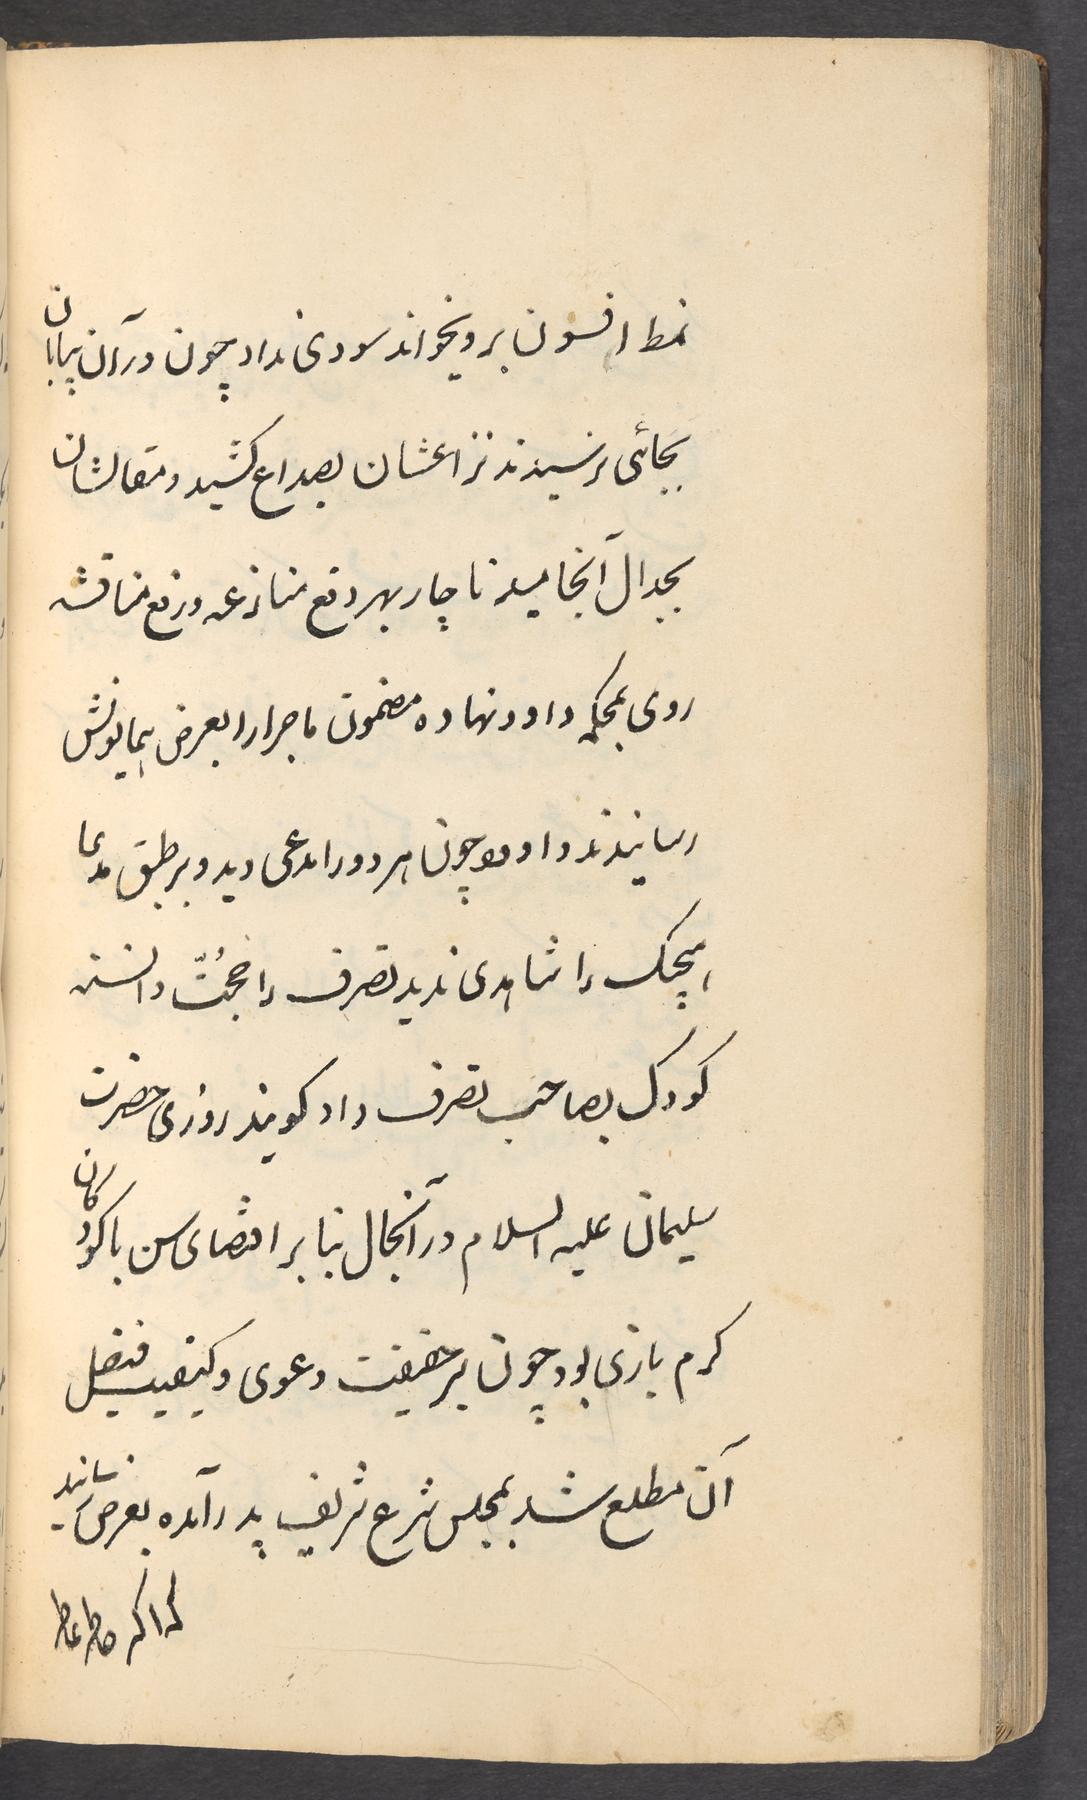 نمط افسون بر ویخواند سودی نداد چون در آن بیابان
بجائی نرسیدند نزاعشان بصداع کشید و مقالشان
بجدال آنجامید ناچار بهر دفع منازعه و رفع مناقشه
روی بمحکمه داود نهاده مضمون ماجرا را بعرض همایونش
رسانیدند داود چون هر دو را مدعی دید و بر طبق مدعا
هیچیک را شاهدی ندید تصرف را حجّت دانسته
کودک بصاحب تصرف داد کویند روزی حضرت
سلیمان علیه السلام در آنحال بنابر اقتضای سن با کودکان
کرم بازی بود چون بر حقیقت دعوی و کیفیت فیصل
آن مطلع شد بمجلس شرع شریف پدر آمده بعرض رسانید
که اکر خاطر عاطر